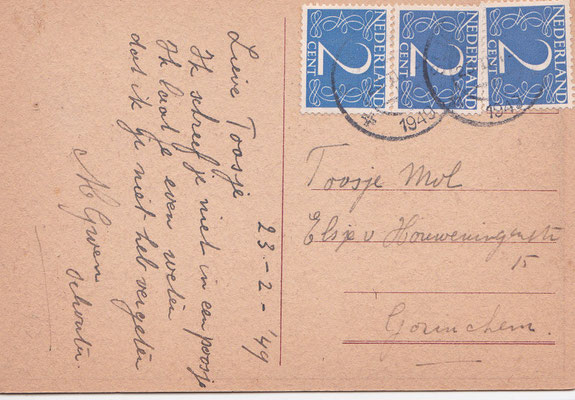 23-2-'49
Lieve Toosje
Ik schreef je niet in een poosje
Ik laat je even weten
dat ik je niet heb vergeten
Schouten.
NEDERLAND
2
CENT
NEDERLAND
2
CENT
NEDERLAND
2
CENT
1949
Toosje Mol
Elsje v Houweningenstr
15
Gorinchem.